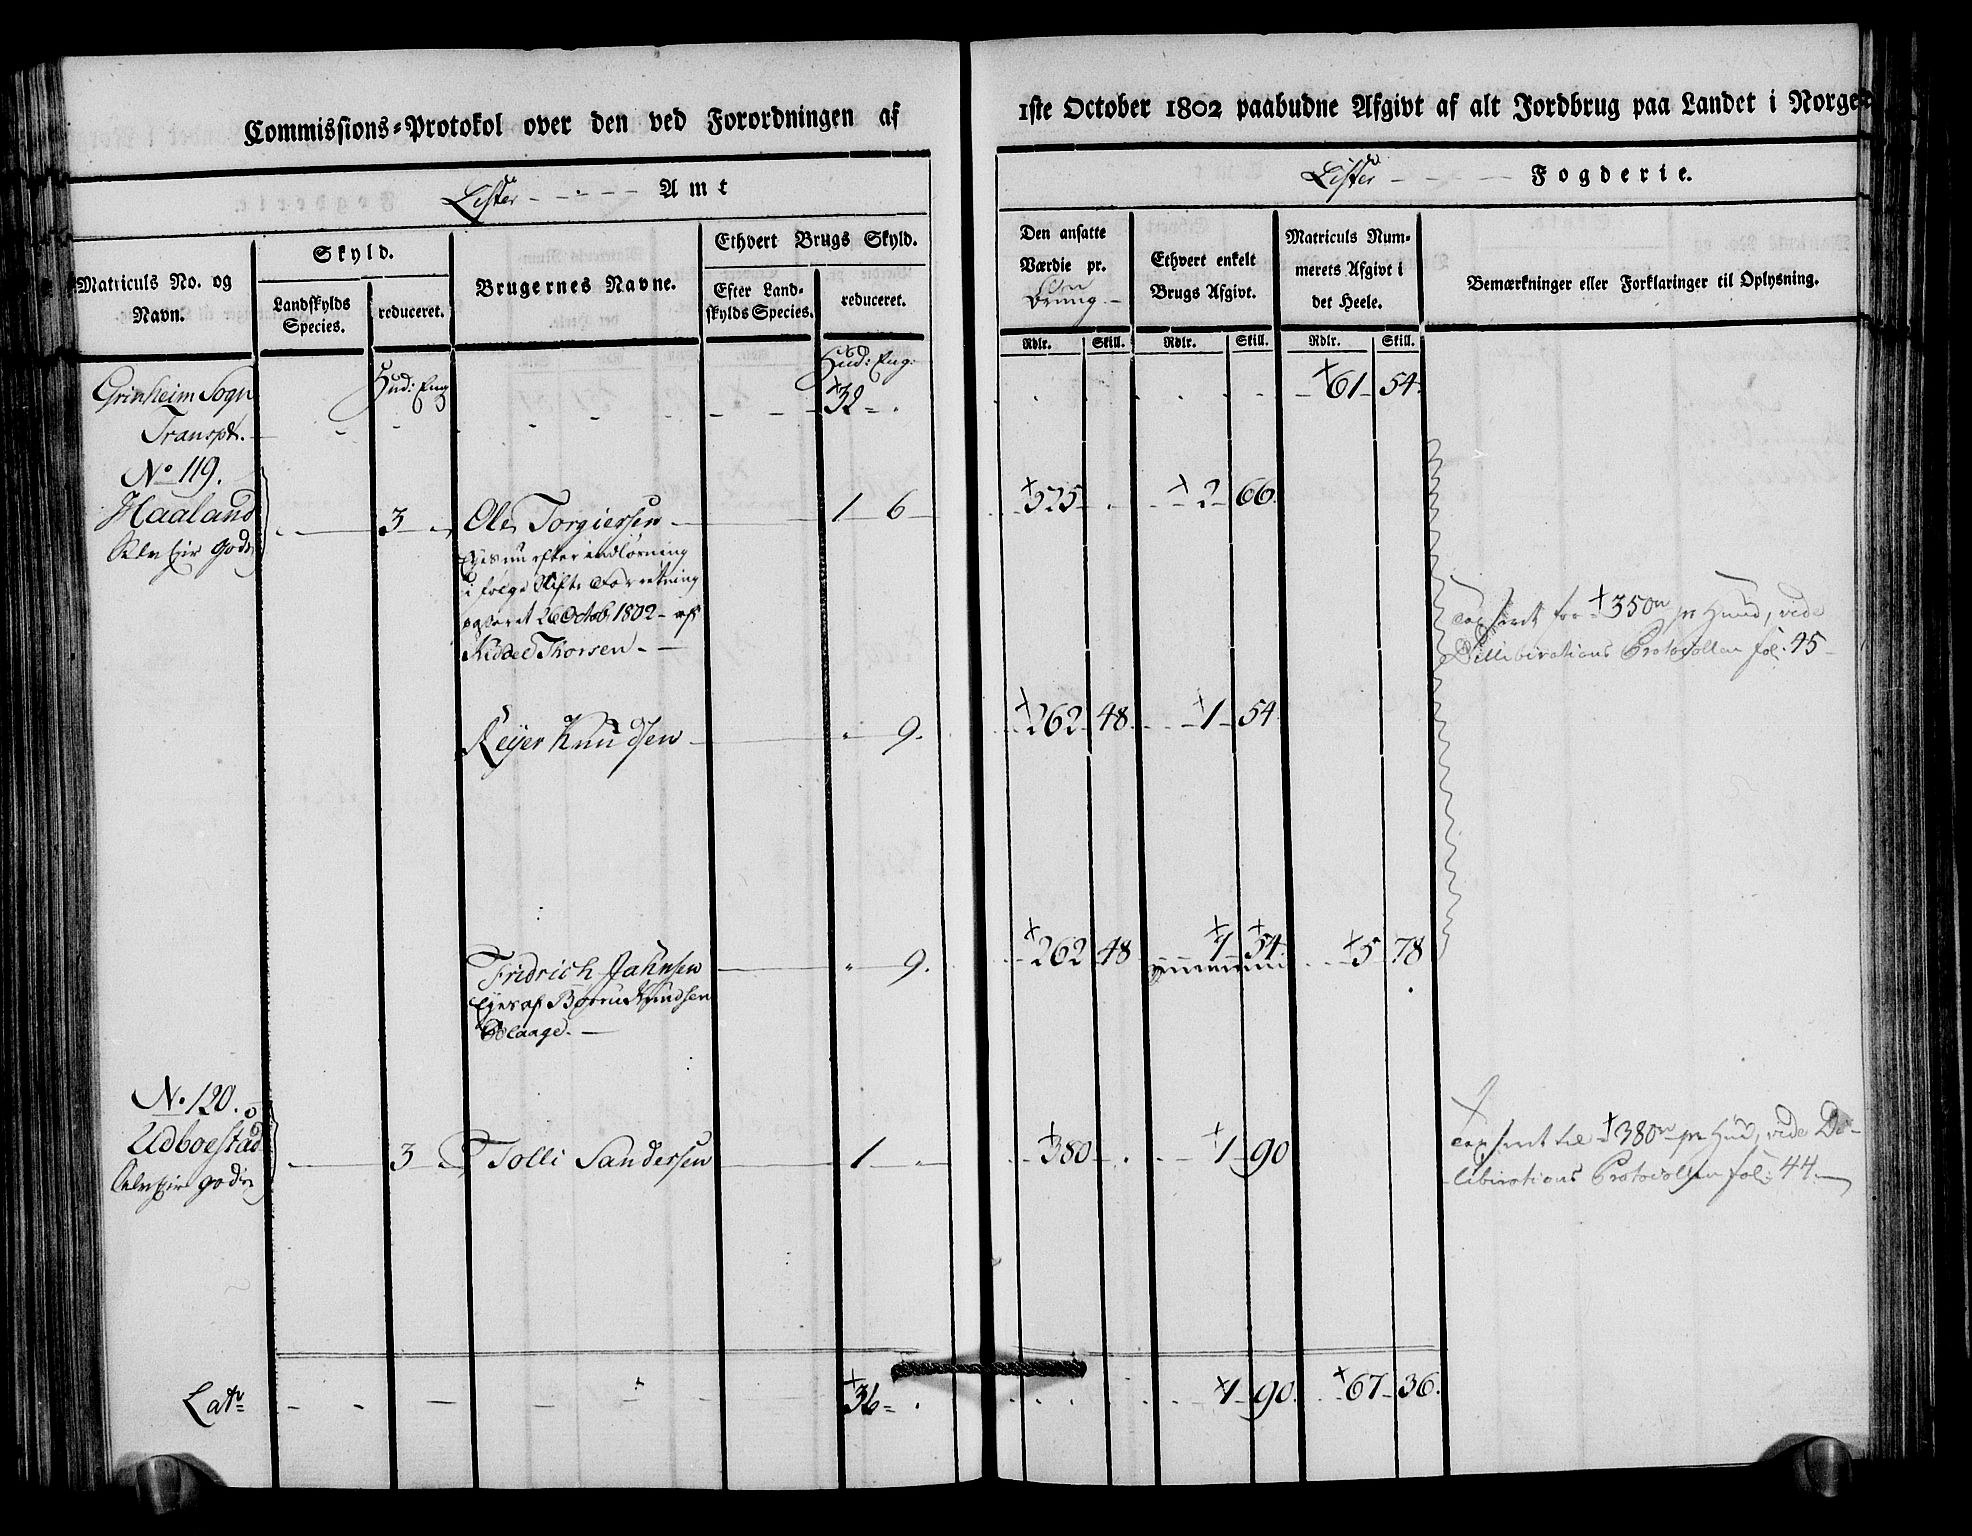 Commissions-Protokol over den ved Forordningen af
1ste October 1802 paabudne Afgivt af alt Jordbrug paa Landet i Norge
Lister Amt
Lister Fogderie.
Matriculs No. og Navn.
Skyld.
Landskylds Species.
reduceret.
Brugernes Navne.
Ethvert Brugs Skyld.
Efter Landskylds Species.
reduceret.
Den ansatte Værdie pr.
Ethvert enkelt Brugs Afgivt.
Matriculs Nummerets Afgivt i det Heele.
Bemærkninger eller Forklaringer til Oplysning.
Rdlr. Skill. Rdlr. Skill. Rdlr. Skill.
Hud: Eng: Hud: Eng:
Grinheim Sogn
Transpt. 32 61 54.
No 119.
Haaland 3 Ole Torgiersen 1 6 525 2 66.
Selv Eier gods
Eyes nu efter indløsning
i følge Skifte Forretning
passeret 26 Octob. 1802 af
Kiddel Thorsen
350 pr Hud, vide
Delliberations Protocollen fol. 45
Reyer Knudsen 9. 262 48. 1 54
Fridrich Jahnsen 9. 262 48 1 54 5 78
Eyes af Børru Knudsen
No. 120.
Udboestad 3 Tolli Sandersen 1 380 1 90
Selv Eier gods
380 pr Hud, vide De-
liberations Protocollen fol: 44.
Lat. 36 1 90. 67 36.